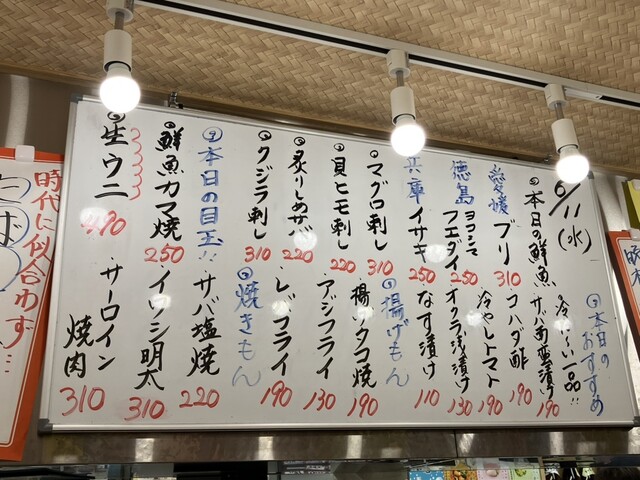 6/11(水)
本日のおすすめ
本日の鮮魚
愛媛 ブリ 310
徳島 ヨコシマフエダイ 250
兵庫 イサキ 250
マグロ刺し 310
貝ヒモ刺し 220
炙りしめサバ 220
クジラ刺し 310
本日の目玉!!
鮮魚カマ焼 250
生ウニ 490
冷た〜い一品!!
サバ南蛮漬け 190
コハダ酢 190
冷やしトマト 190
オクラ浅漬け 130
なす漬け 110
揚げもん
揚げタコ焼 190
アジフライ 130
レバフライ 190
焼きもん
サバ塩焼 220
イワシ明太 310
サーロイン焼肉 310
時代に似合わず…
たば